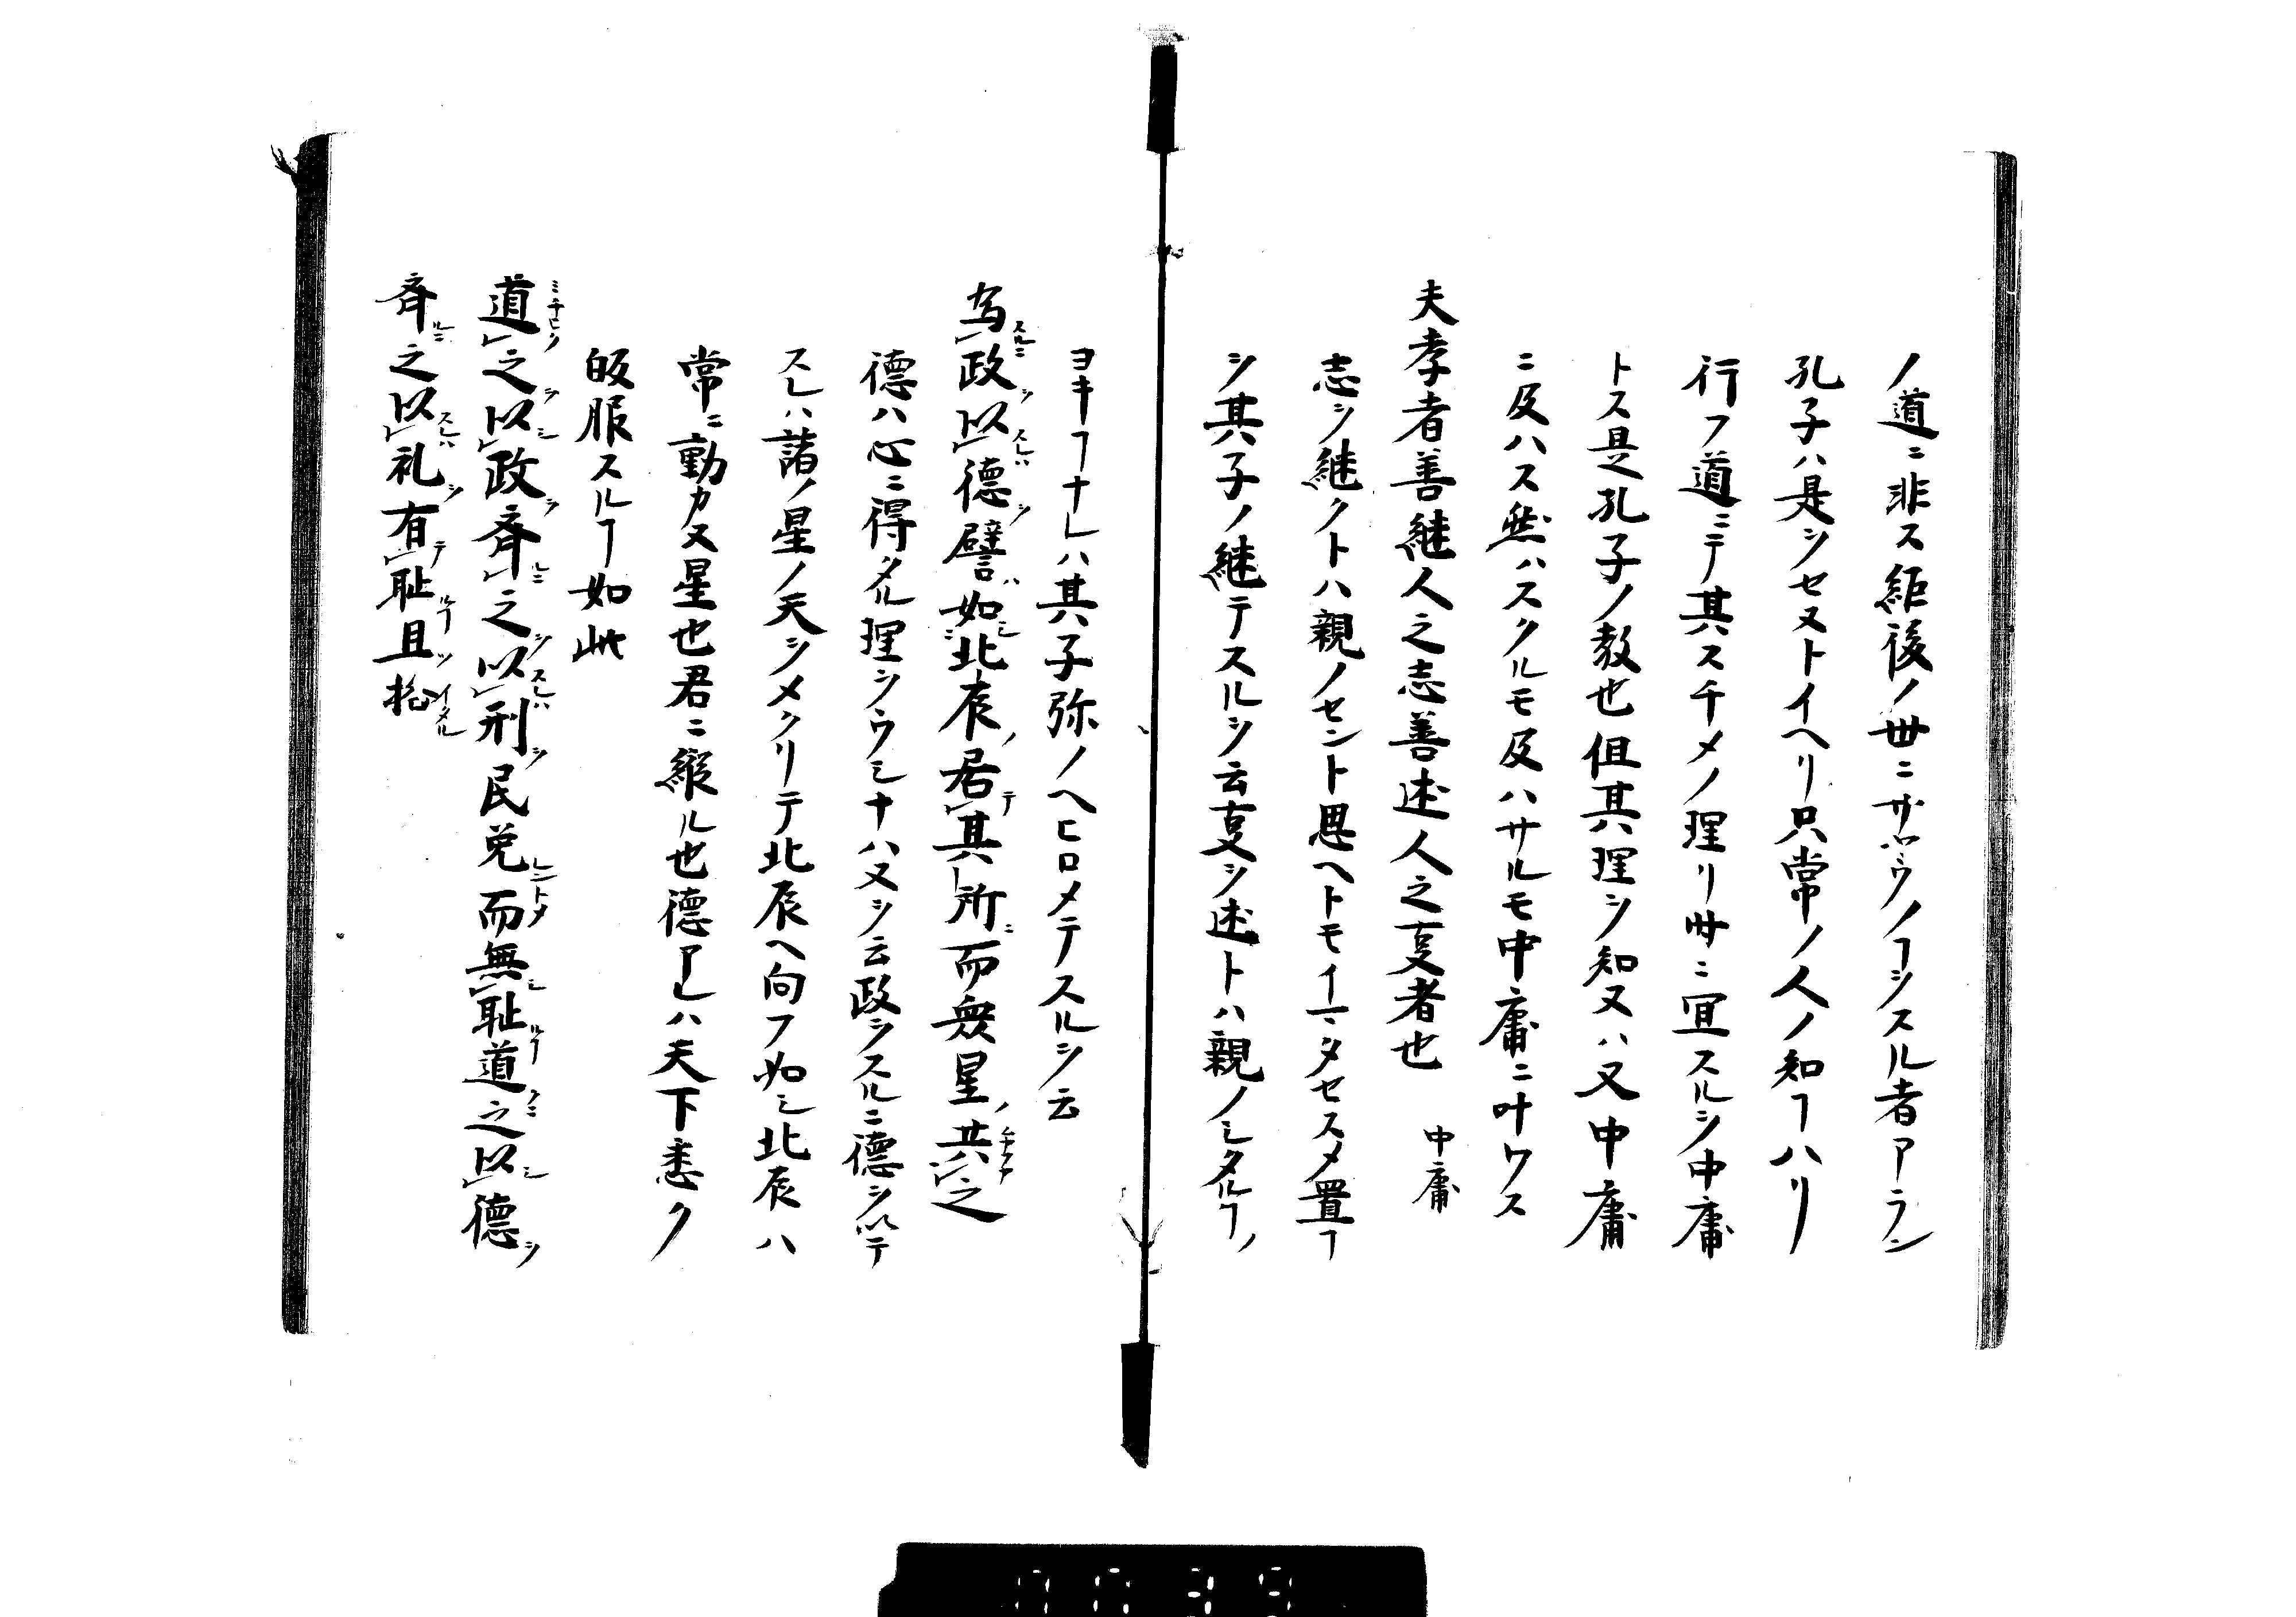 ノ道ニ非ス縦後ノ世ニサヤウノヿヲスル者アラン
孔子ハ是ヲセヌトイヘリ只常ノ人ノ知ヿハリ
行フ道ニテ其スチメノ理リ世ニ宜スルヲ中庸
トス是孔子ノ教也但其理ヲ知又ハ又中庸
ニ及ハス然ハスクルモ及ハサルモ中庸ニ叶ワス
夫孝者善継人之志善述人之㕝者也 中庸
志ヲ継クトハ親ノセント思ヘトモイマタセスメ置ヿ
ヲ其子ノ継テスルヲ云㕝ヲ述トハ親ノシタルヿノ
ヨキヿナレハ其子弥ノヘヒロメテスルヲ云
為政以德譬如北辰居其所而衆星共之
德ハ心ニ得タル理ヲウシナハヌヲ云政ヲスルニ德ヲ以テ
スレハ諸ノ星ノ天ヲメクリテ北辰ヘ向フ如シ北辰ハ
常ニ動カヌ星也君ニ縦ル也德アレハ天下悉ク
皈服スルヿ如此
道之以政斉之以刑民免而無耻道之以德
斉之以礼有耻且格